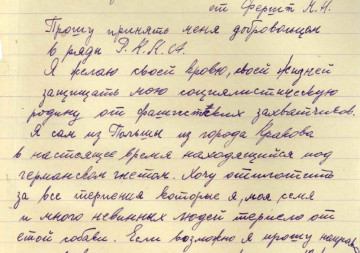 от Фершт М.Н.
Прошу принять меня добровольцем
в ряды Р.К.К.А.
Я желаю своей кровю, своей жизней
защищать мою социялистическую
родину от фашиствких захватчиков.
Я сам из Польшы из города Кракова
в настоящее время находящийся под
германским гнетом. Хочу отплотить
за все терпения которые я, моя семя
и много невинных людей терпело от
етой собаки. Если возможно я прошу направ